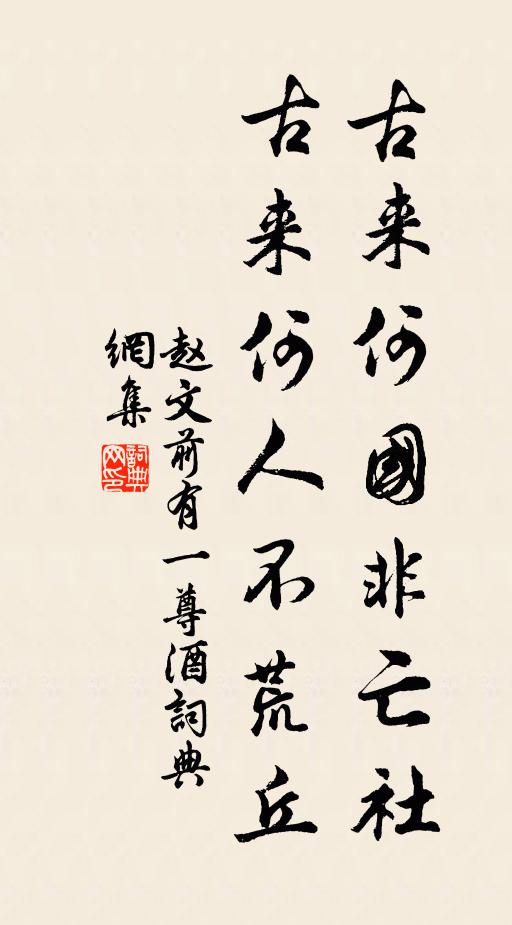 古来何國非亡社
古来何人不荒丘
赵文前有一尊酒詞典
網集
詞典网印